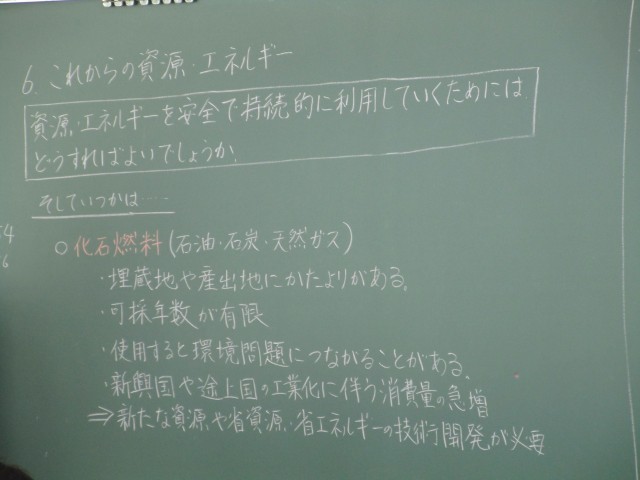 6. これからの資源・エネルギー
資源・エネルギーを安全で持続的に利用していくためには
どうすればよいでしょうか。
そしていつかは……
○ 化石燃料(石油・石炭・天然ガス)
・埋蔵地や産出地にかたよりがある。
・可採年数が有限
・使用すると環境問題につながることがある。
・新興国や途上国の工業化に伴う消費量の急増
⇒新たな資源や省資源・省エネルギーの技術開発が必要